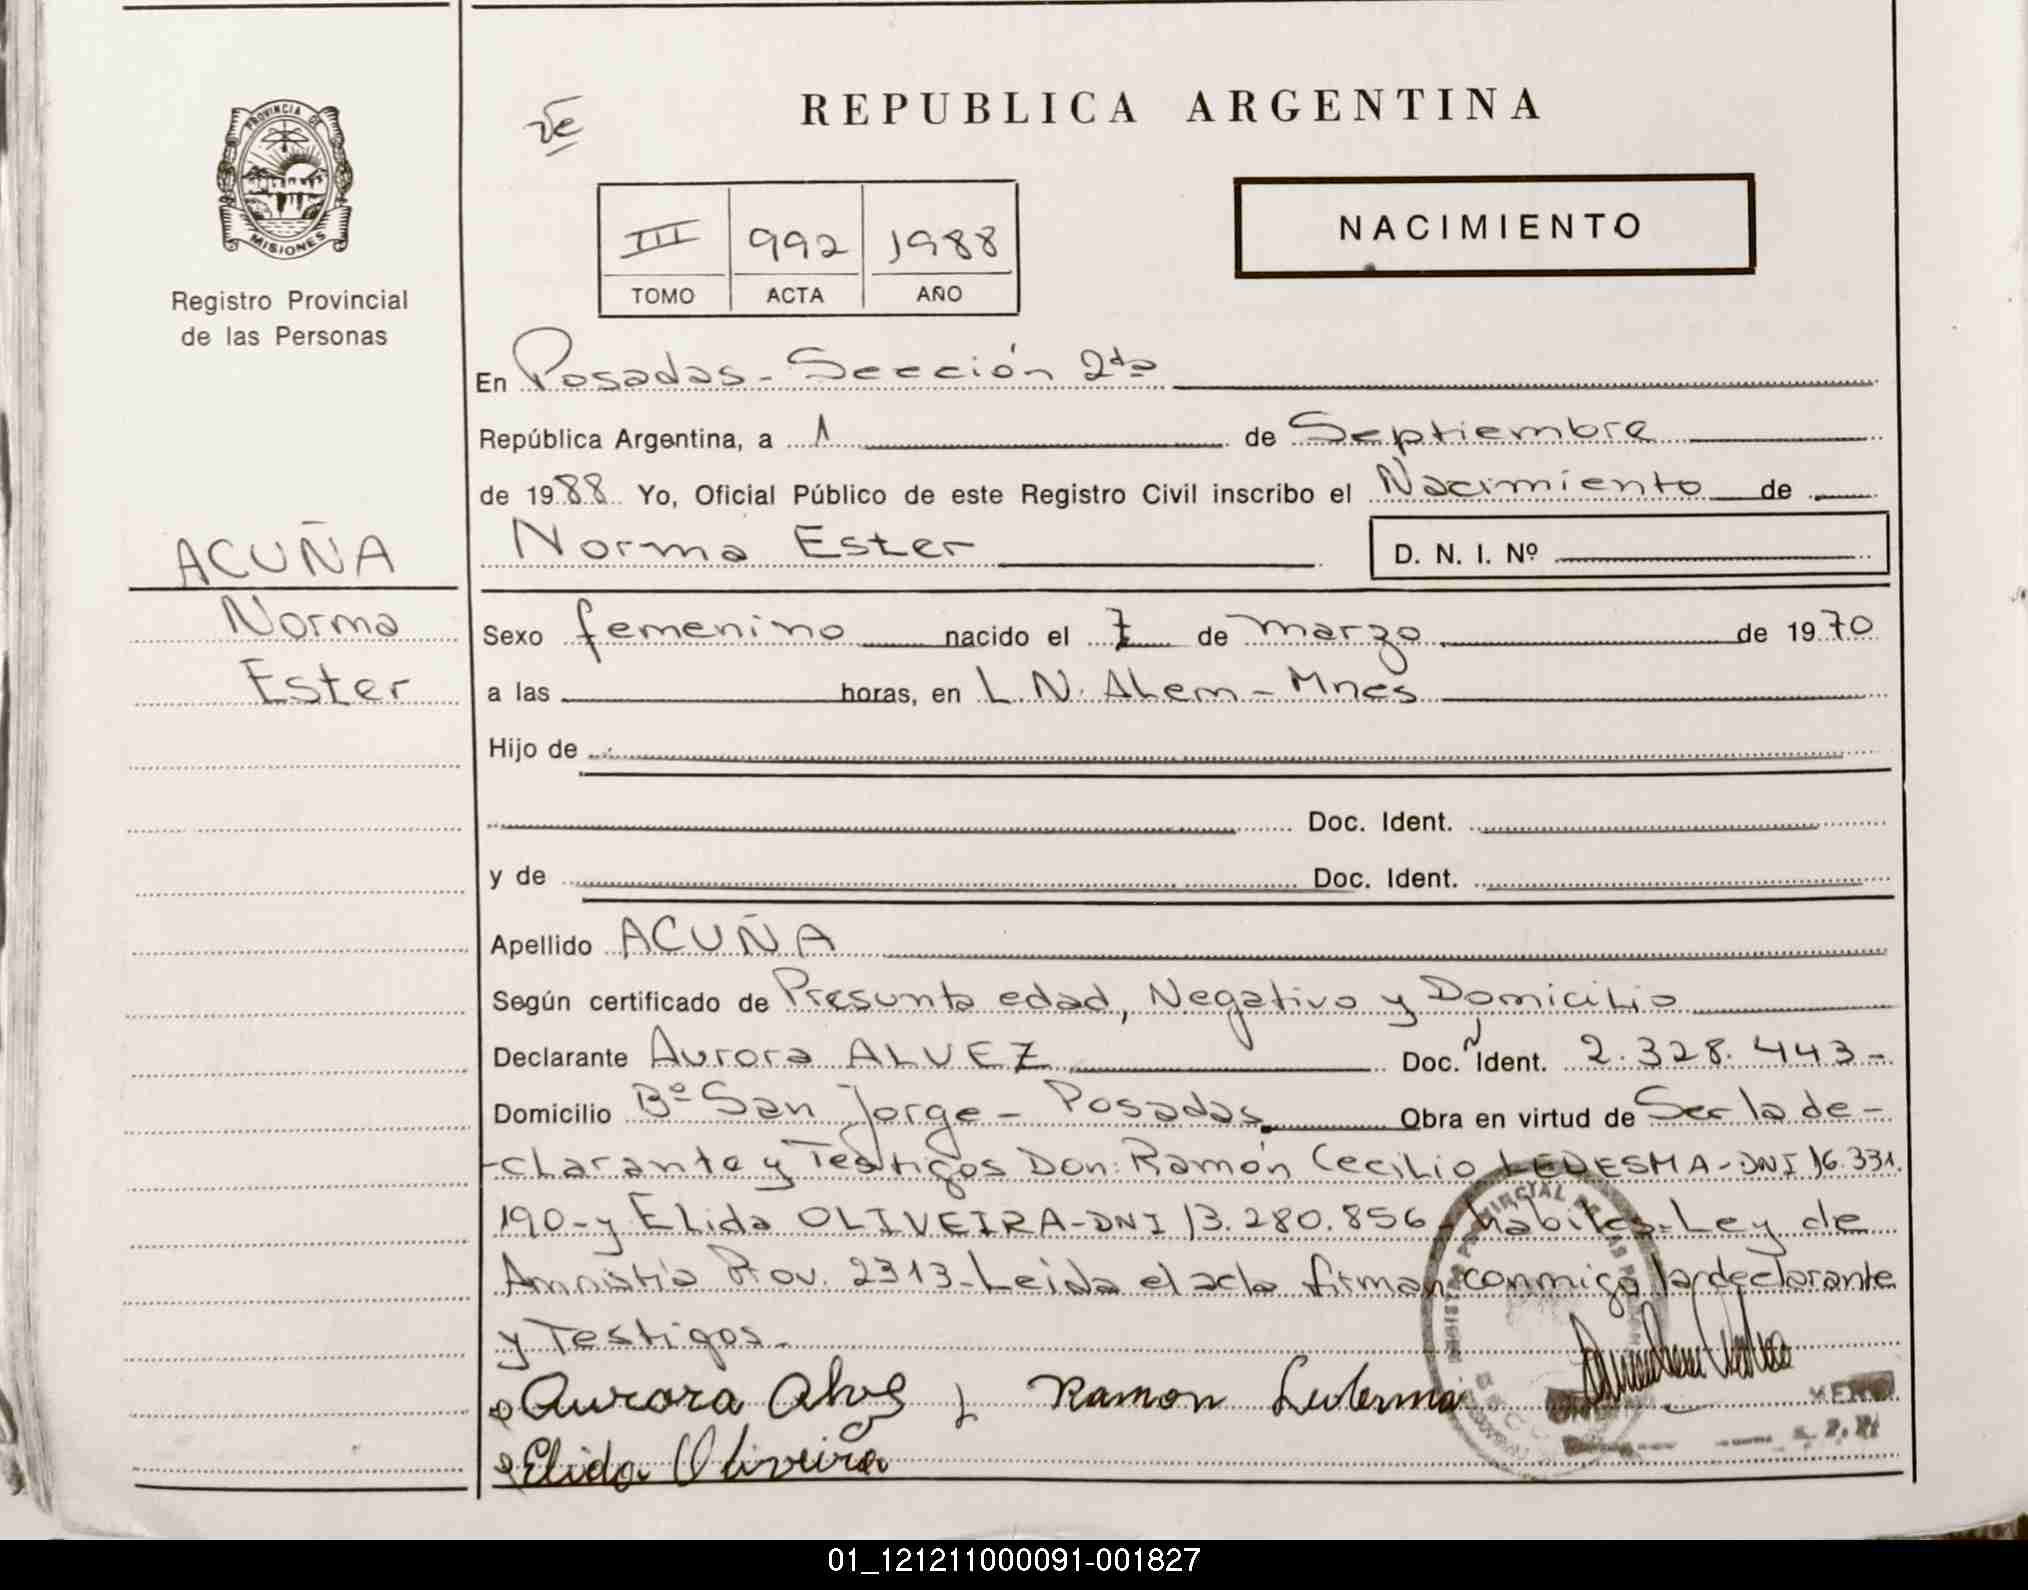 PROVINCIA DE
MISIONES
Registro Provincial
de las Personas
ACUÑA
Norma
Ester
REPUBLICA ARGENTINA
III 992 1988
TOMO ACTA AÑO
NACIMIENTO
En Posadas - Sección 2da
República Argentina, a 1 de Septiembre
de 1988 Yo, Oficial Público de este Registro Civil inscribo el Nacimiento de
Norma Ester D. N. I. Nº
Sexo femenino nacido el 7 de marzo de 1970
a las horas, en L. N. Alem - Mnes
Hijo de
Doc. Ident.
y de Doc. Ident.
Apellido ACUÑA
Según certificado de Presunta edad, Negativo y Domicilio
Declarante Aurora ALVEZ Doc. Ident. 2.328.443-
Domicilio Bº San Jorge - Posadas Obra en virtud de Ser la de-
-clarante y Testigos Don: Ramón Cecilio LEDESMA - DNI 16.331.
190- y Elida OLIVEIRA - DNI 13.280.856 - habiles - Ley de
Amnistía Prov. 2313 - Leida el acta firman conmigo la declarante
y Testigos.-
Aurora Alvez Ramon Ledesma
Elida Oliveira
01_121211000091-001827